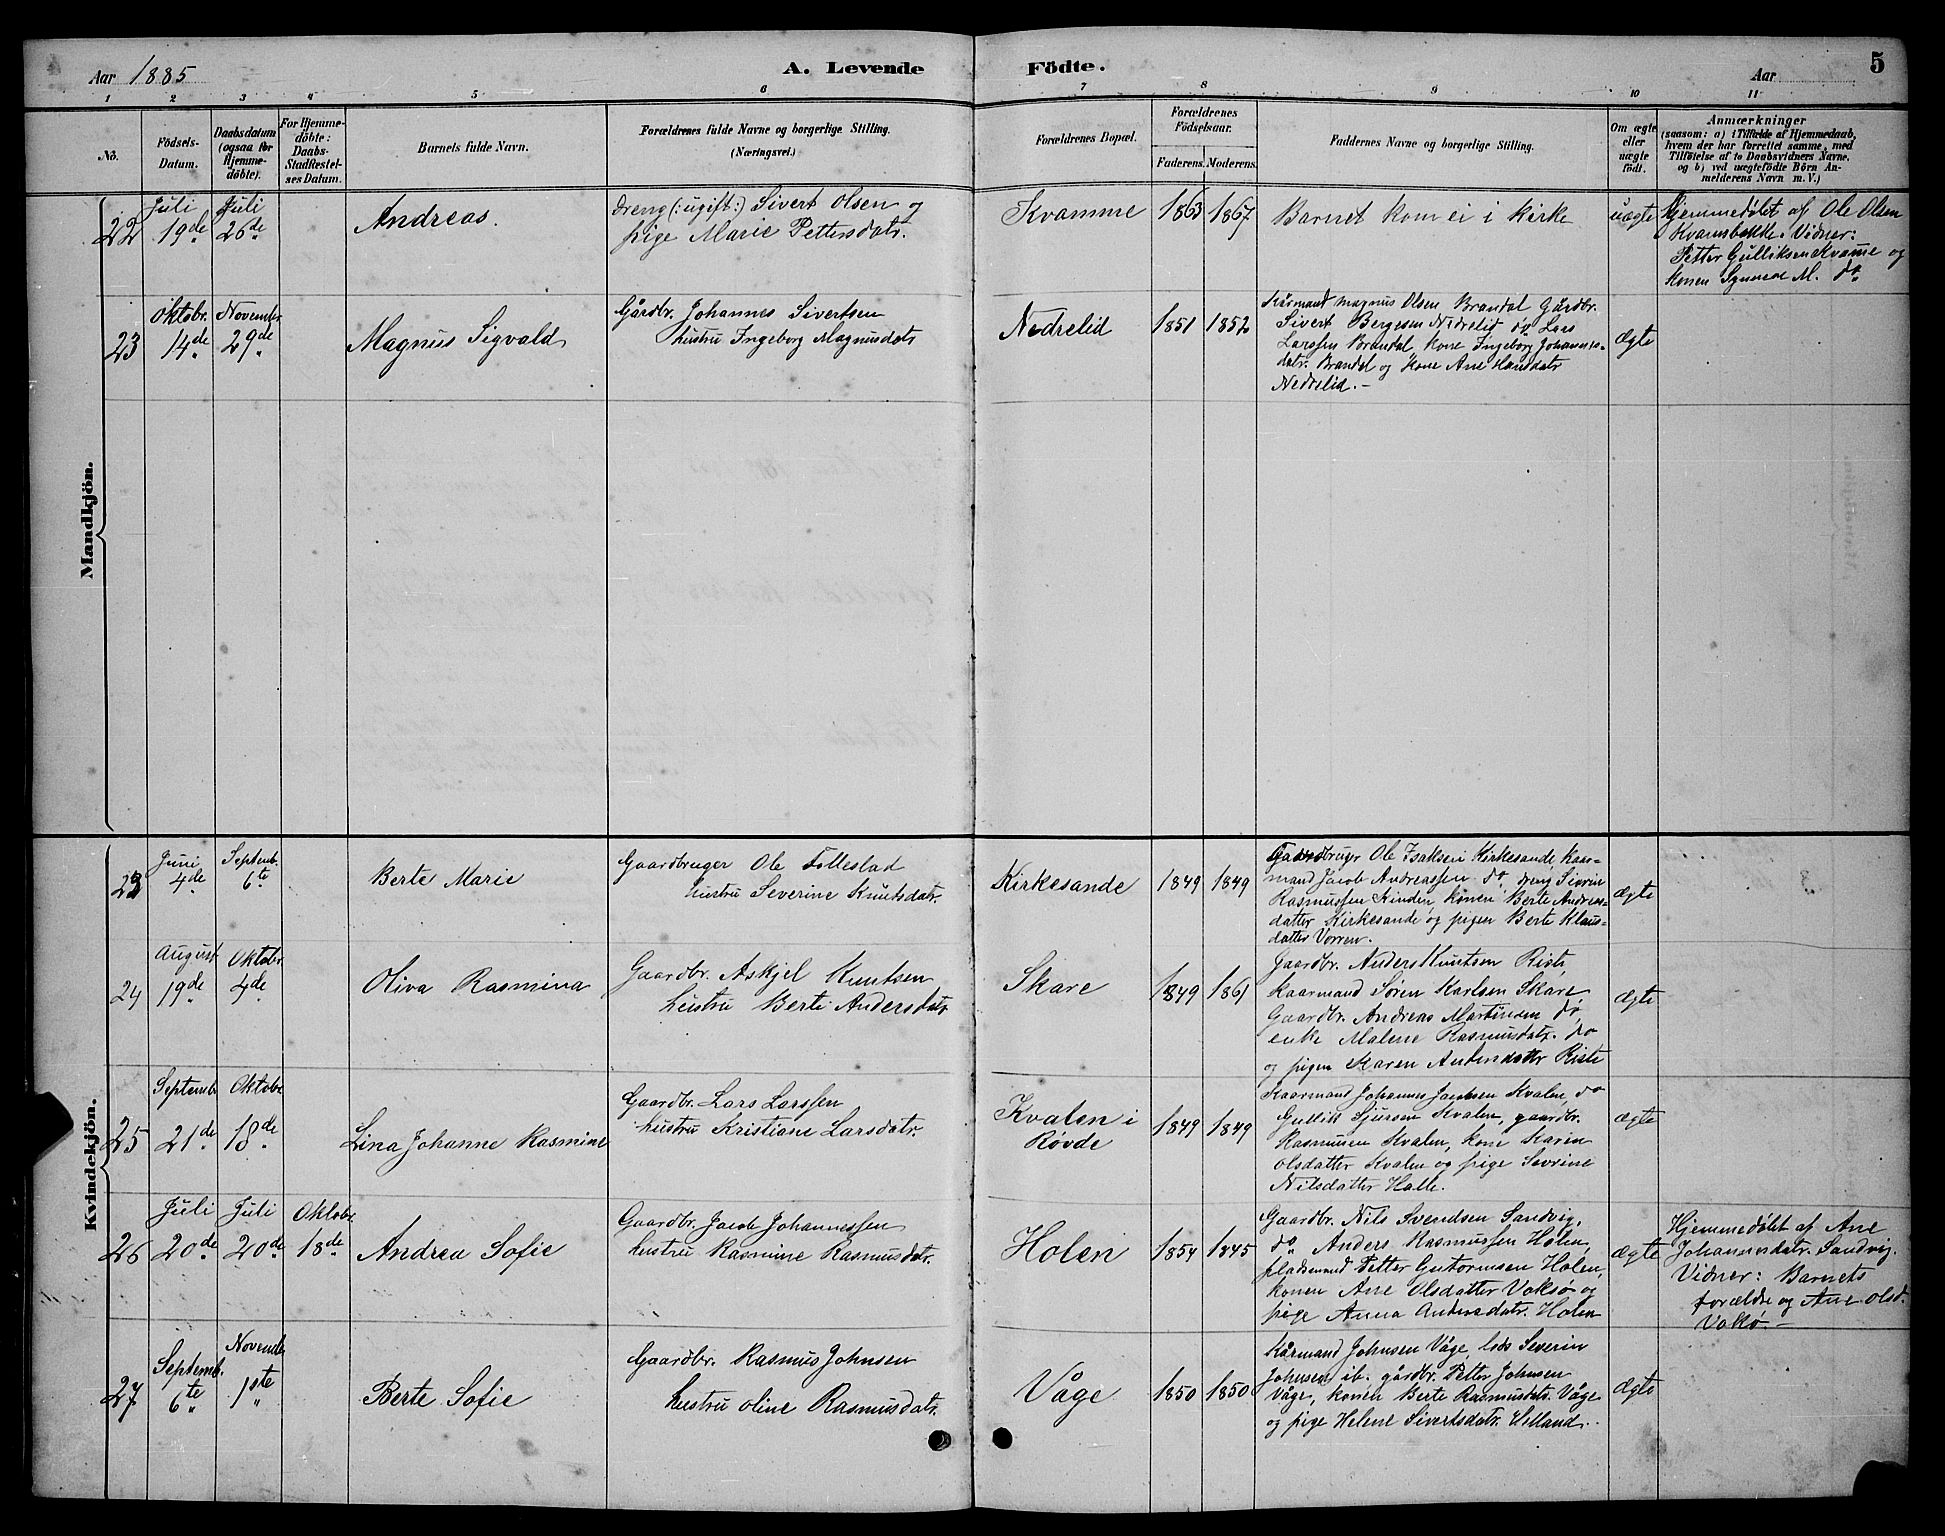 Aar 1885
A. Levende Födte.
Aar
5
1 2 3 4 5 6 7 8 9 10 11
No.
Födsels-
Datum.
Daabsdatum
(ogsaa for
Hjemme-
döbte).
For Hjemme-
döbte:
Daabs-
Stadfæstel-
ses Datum.
Barnets fulde Navn.
Forældrenes fulde Navne og borgerlige Stilling.
(Næringsvei.)
Forældrenes Bopæl.
Forældrenes
Födselsaar.
Faderens. Moderens.
Faddernes Navne og borgerlige Stilling.
Om ægte
eller
uægte
født.
Anmærkninger
(saasom: a) i Tilfælde af Hjemmedaab,
hvem der har forrettet samme, med
Tilföielse af to Daabsvidners Navne,
og b) ved uægtefödte Börn An-
melderens Navn m. V.)
Mandkjön.
22
Juli
19de
Juli
26de
Andreas.
dreng (: ugift :) Sivert Olsen og
pige Marie Pettersdatr.
Kvamme
1863 1867
Barnet kom ei i Kirke
uægte
Hjemmedøbt af Ole Olsen
Kvamsbække. Vidner:
Petter Gulliksen Kvame og
konen Synneve M. do
23
Oktobr.
14de
November
29de
Magnus Sigvald
Gårdbr. Johannes Sivertsen
hustru Ingeborg Magnusdatr
Nedrelid
1851 1852
Kårmand Magnus Olsen Brandal Gårdbr.
Sivert Bergesen Nedrelid do Lars
Larssen Brandal, kone Ingeborg Johannes-
datr. Brandal og kone Ane Hansdatr
Nedrelid.-
Ægte
Kvindekjön.
23
Juni
4de
Septemb.
6te
Berte Marie
Gaardbruger Ole Folleslad
hustru Severine Knutsdatr.
Kirkesande
1849 1849
Gaardbrugr Ole Isaksen Kirkesande, Kaar-
mand Jacob Andreassen do, dreng Sivrin
Rasmussen Kinden, konen Berte Andreas-
datter Kirkesande og pigen Berte Klaus-
datter Vorren.
ægte
24
August
19de
Oktober
4de
Oliva Rasmina
Gaardbr. Askjel Knutsen
hustru Berte Andersdatr
Skare
1849 1861
Gaardbr. Anders Knutsen Riste,
kaarmand Søren Karlsen Skare,
Gaardbr. Andreas Martinsen do,
enke Malene Rasmusdatr. do
og pigen Karen Antondatter Riste
ægte
25
Septemb.
21de
Oktobr
18de
Lina Johanne Rasmine
Gaardbr. Lars Larssen
hustru Kristiane Larsdatr.
Kvalen i
Røvde
1849 1849
Kaarmand Johannes Jacobsen Kvalen, do
Gullik Sjursen Kvalen, gaardbr.
Rasmusen Kvalen, kone Karen
Olsdatter Kvalen og pige Sevrine
Nilsdatter Halle.
ægte
26
Juli
20de
Juli
20de
Oktobr
18de
Andrea Sofie
Gaardbr. Jacob Johannessen
hustru Rasmine Rasmusdatr.
Holen
1854 1845
Gaardbr. Nils Svendsen Sandvig,
do Anders Rasmussen Holen,
pladsmand Petter Gutormsen Holen,
konen Ane Olsdatter Voksø og
pige Anna Andersdatr. Holen
ægte
Hjemmedøbt af Ane
Johannesdatr. Sandvig.
Vidner: Barnets
forældre og Ane Olsd.
Vokø.-
27
Septemb.
6te
Novembr
1ste
Berte Sofie
Gaardbr. Rasmus Johnsen
hustru Oline Rasmusdatr.
Våge
1850 1850
Kårmand Johnsen Våge, lods Severin
Johnsen ib. gårdbr. Petter Johnsen
Våge, konen Berte Rasmusdatr. Våge
og pige Helene Sivertsdatr. Helland.
Ægte